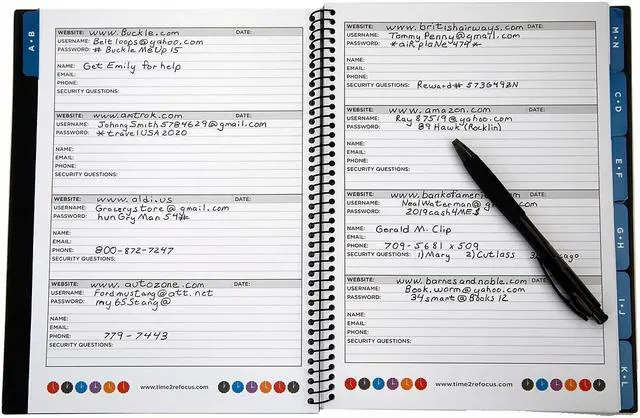 A•B
WEBSITE: www.Buckle.com DATE:
USERNAME: Beltloops@yahoo.com
PASSWORD: # Buckle Me Up 15
NAME: Get Emily for help
EMAIL:
PHONE:
SECURITY QUESTIONS:
WEBSITE: www.amtrak.com DATE:
USERNAME: JohnnySmith5784629@gmail.com
PASSWORD: *travelUSA2020
NAME:
EMAIL:
PHONE:
SECURITY QUESTIONS:
WEBSITE: www.aldi.us DATE:
USERNAME: Grocerystore@gmail.com
PASSWORD: hunGryMan54#
NAME:
EMAIL:
PHONE: 800-872-7247
SECURITY QUESTIONS:
WEBSITE: www.autozone.com DATE:
USERNAME: Fordmustang@att.net
PASSWORD: my65Stang@
NAME:
EMAIL:
PHONE: 779-7443
SECURITY QUESTIONS:
www.time2refocus.com
WEBSITE: www.britishairways.com DATE:
USERNAME: TommyPenny@gmail.com
PASSWORD: *aiRplaNe474*
NAME:
EMAIL:
PHONE:
SECURITY QUESTIONS: Reward# 573G49ZN
WEBSITE: www.amazon.com DATE:
USERNAME: Ray87519@yahoo.com
PASSWORD: 89Hawk(Rocklin)
NAME:
EMAIL:
PHONE:
SECURITY QUESTIONS:
WEBSITE: www.bankofameri .com DATE:
USERNAME: NealWaterman@g .com
PASSWORD: 2019cash4ME$
NAME: Gerald M. Clip
EMAIL:
PHONE: 709-5681 x 509
SECURITY QUESTIONS: 1) Mary 2) Cutlass 3) cago
WEBSITE: www.barnesandnoble.com DATE:
USERNAME: Book.worm@yahoo.com
PASSWORD: 34smart@Books12
NAME:
EMAIL:
PHONE:
SECURITY QUESTIONS:
www.time2refocus.com
M•N
C•D
E•F
G•H
I•J
K•L